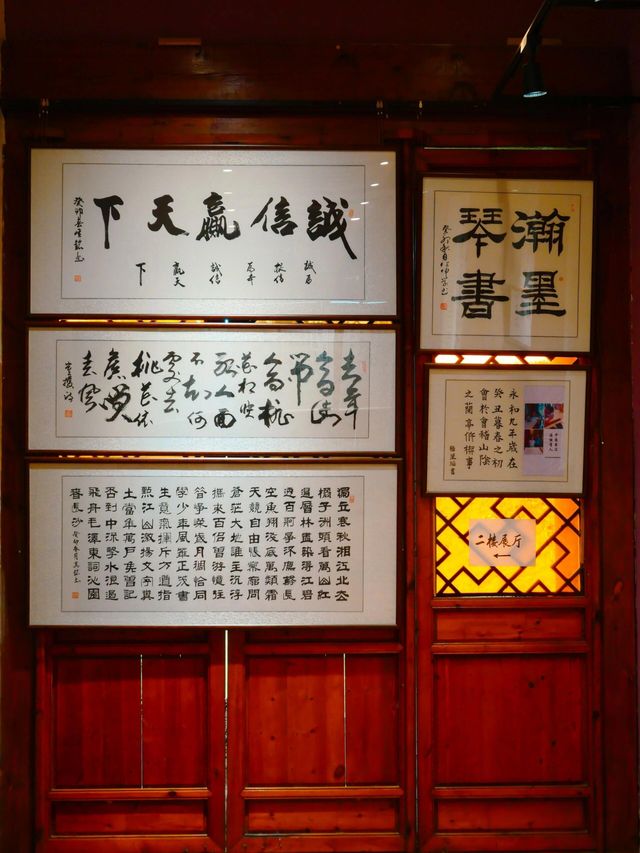 誠信贏天下
誠信
贏天
下
癸卯
去年
今日此
門中
人面桃
花相映
紅人面
不知何
處去
桃花依
舊笑
春風
崔護詩
獨立寒秋湘江北去
橘子洲頭看萬山紅
遍層林盡染漫江碧
透百舸爭流鷹擊長
空魚翔淺底萬類霜
天競自由悵寥廓問
蒼茫大地誰主沉浮
攜來百侶曾游憶往
昔崢嶸歲月稠恰同
學少年風華正茂書
生意氣揮斥方遒指
點江山激揚文字糞
土當年萬戶侯曾記
否到中流擊水浪遏
飛舟毛澤東詞沁園
春長沙 癸卯春月
瀚墨
琴書
癸卯秋月
永和九年歲在
癸丑暮春之初
會於會稽山陰
之蘭亭修禊事
二楼展厅
←